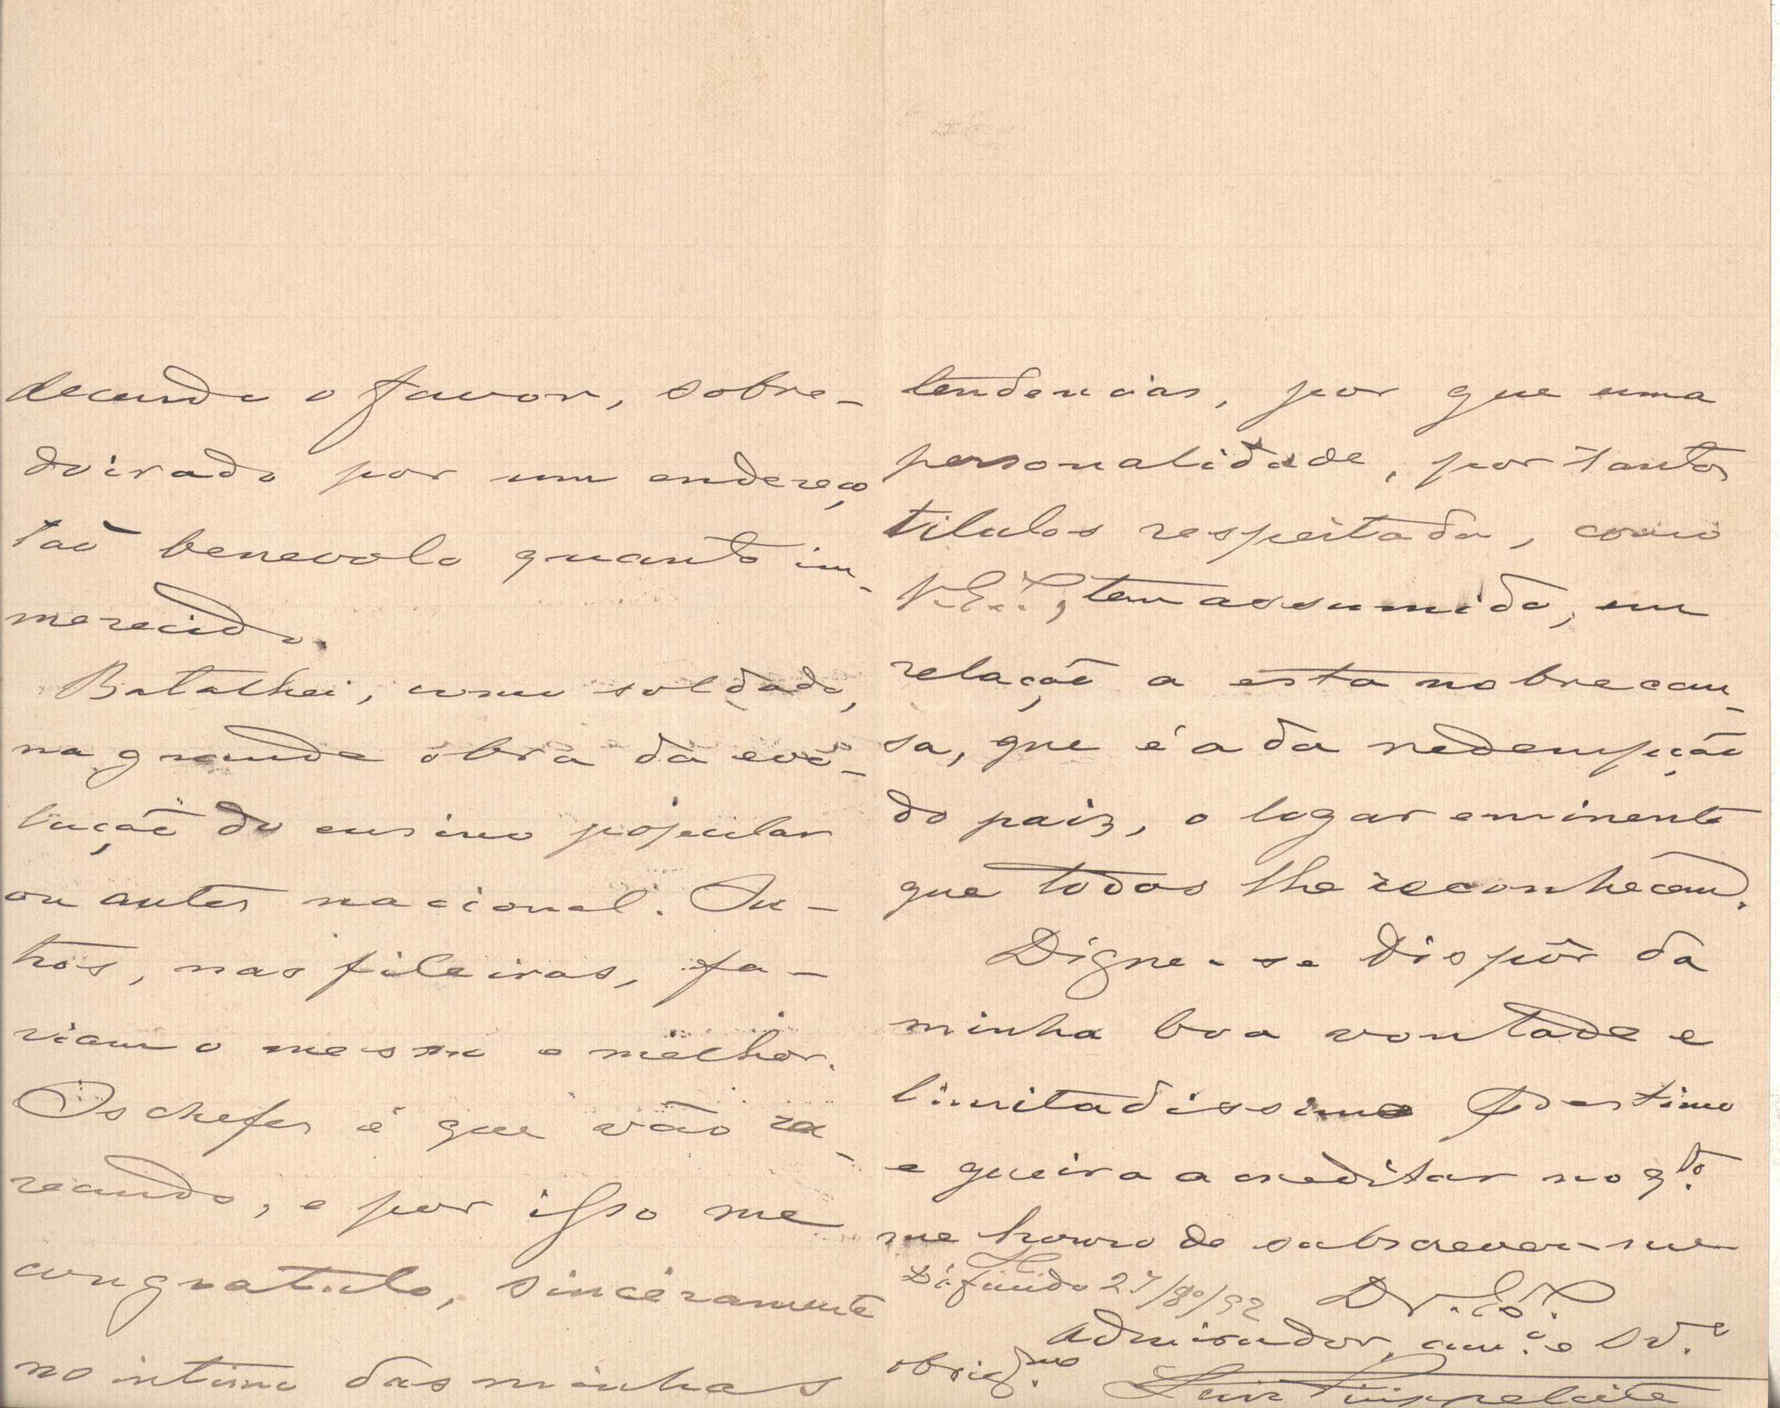 decendo o favor, sobre-
doirado por um endereço
tão benevolo quanto im-
merecido.
Batalhei, como soldado,
na grande obra da evo-
lução do ensino popular
ou antes nacional. Ou-
tros, nas fileiras, fa-
riam o mesmo e melhor.
Os chefes é que vão ra-
reando, e por isso me
congratulo, sinceramente
no intimo das minhas
tendencias, por que uma
personalidade, por tantos
titulos respeitada, como
V. Ex.ª, tem assumido, em
relação a esta nobre cau-
sa, que é a da redempção
do paiz, o logar eminente
que todos lhe reconhecem.
Digne-se dispôr da
minha boa vontade e
limitadissimo prestimo
e queira acreditar no q.to
me honro de subscrever-me
Dáfundo
De V. Ex.ª
admirador, am.º e
obrig.mo
Luiz